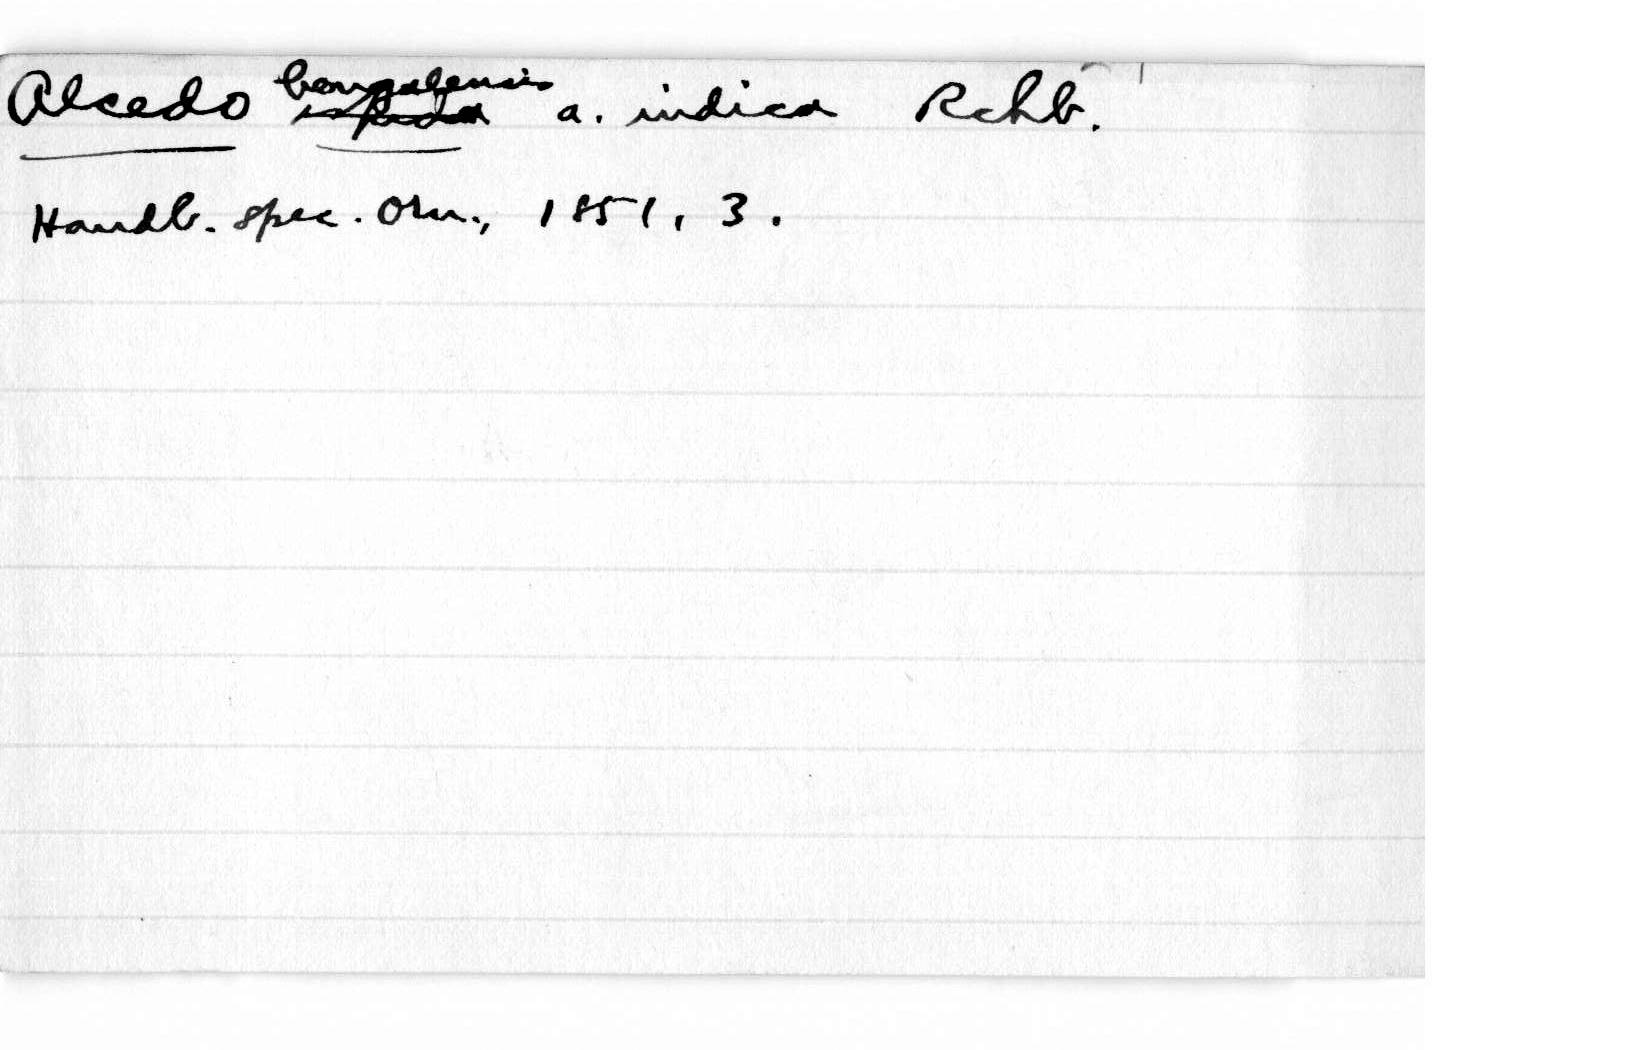 Alcedo bengalensis ispida a. indica Rchb.
Handb. spec. Orn., 1851, 3.